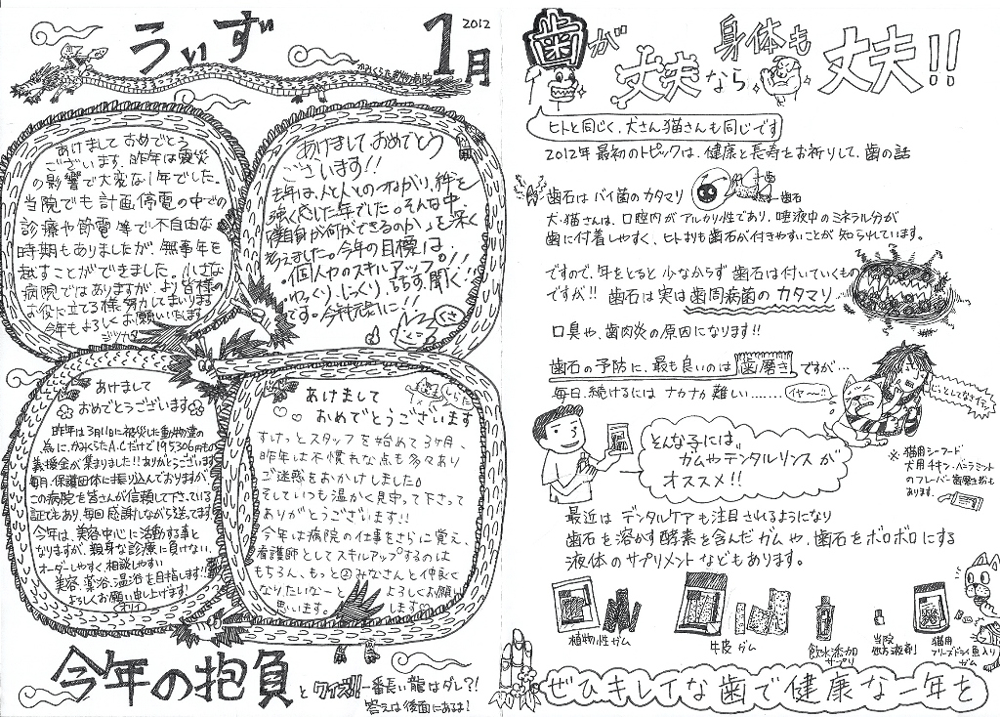 うぃず
1月
2012
かみくらた動物病院
あけまして おめでとう
ございます。昨年は震災
の影響で大変な1年でした。
当院でも計画停電の中での
診療や節電等で不自由な
時期もありましたが、無事年を
越すことができました。小さな
病院ではありますが、より皆様の
お役に立てる様、努力してまいります
今年もよろしくお願いいたします
あけまして おめでとう
ございます!!
去年は、人と人とのつながり、絆を
強く感じた年でした。そんな中、
僕自身が何ができるのか、を深く
考えました。今年の目標は、
個人力のスキルアップ!!
ゆっくり、じっくり、話す、聞く
です。今年も元気に!
あけまして
おめでとうございます
昨年は3月11日に被災した動物達の
為に、かみくらたA.Cだけで195306円もの
義援金が集まりました!!ありがとうございます
毎月、保護団体に振り込んでおりますが、
この病院を皆さんが信頼して下さっている
証でもあり、毎回感謝しながら送ってます
今年は、美容中心に活動する事と
なりますが、親身な診療に負けない、
オーダーしやすく相談しやすい
美容、薬浴、温浴を目指します!!
よろしくお願い申し上げます!
あけまして
おめでとうございます
すけっとスタッフを始めて3ヶ月、
昨年は不慣れな点も多々あり
ご迷惑をおかけしました。
そしていつも温かく見守って下さって
ありがとうございます!!
今年は病院の仕事をさらに覚え、
看護師としてスキルアップするのは
もちろん、もっとみなさんと仲良く
なりたいなーと
思います。
よろしくお願い
します
今年の抱負
と クイズ!! 一番長い龍はダレ?!
答えは後面にあるよ!
歯が
丈夫なら
身体も
丈夫!!
ヒトと同じく、犬さん猫さんも同じです
2012年最初のトピックは、健康と長寿をお祈りして、歯の話
歯石はバイ菌のカタマリ
歯石
犬・猫さんは、口腔内がアルカリ性であり、唾液中のミネラル分が
歯に付着しやすく、ヒトよりも歯石が付きやすいことが知られています。
ですので、年をとると少なからず歯石は付いていくもの
ですが!! 歯石は実は歯周病菌のカタマリ
口臭や、歯肉炎の原因になります!!
歯石の予防に、最も良いのは歯磨きですが…
毎日、続けるにはナカナカ難しい………
イヤ〜!!
じっとしてなサイデー
そんな子には、
ガムやデンタルリンスが
オススメ!!
※猫用シーフード
犬用チキン・バニラミント
のフレーバー歯磨き粉も
あります。
最近はデンタルケアも注目されるようになり
歯石を溶かす酵素を含んだガムや、歯石をボロボロにする
液体のサプリメントなどもあります。
植物性ガム
牛皮ガム
飲水添加
サプリ
当院
処方液剤
猫用
フリーズドライ魚入り
ガム
ぜひキレイな歯で健康な一年を